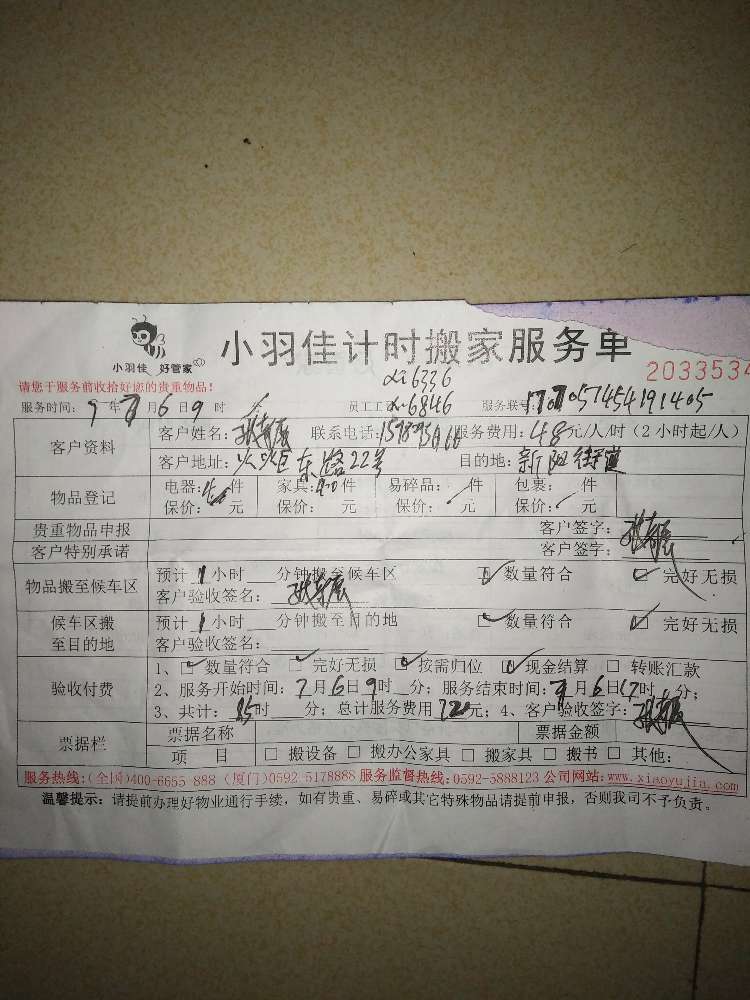 小羽佳 好管家
小羽佳计时搬家服务单
2033534
请您于服务前收拾好您的贵重物品!
6336
6846
服务时间: 9 年 7 月 6 日 9 时 员工工 服务联号:
客户资料
客户姓名: 联系电话: 服务费用: 48 元/人/时 (2 小时起/人)
客户地址: 火炬东路22号 目的地: 新阳街道
物品登记
电器: 件 家具: 件 易碎品: 件 包裹: 件
保价: 元 保价: 元 保价: 元 保价: 元
贵重物品申报 客户签字:
客户特别承诺 客户签字:
物品搬至候车区
预计 1 小时 分钟搬至候车区 数量符合 完好无损
客户验收签名:
候车区搬至目的地
预计 1 小时 分钟搬至目的地 数量符合 完好无损
客户验收签名:
验收付费
1、 数量符合 完好无损 按需归位 现金结算 转账汇款
2、服务开始时间: 7 月 6 日 9 时 分; 服务结束时间: 7 月 6 日 17 时 分;
3、共计: 时 分; 总计服务费用 720 元; 4、客户验收签字:
票据栏
票据名称 票据金额
项 目 搬设备 搬办公家具 搬家具 搬书 其他:
服务热线: (全国)400-6655-888 (厦门)0592-5178888 服务监督热线: 0592-5888123 公司网站: www.xiaoyujia.com
温馨提示: 请提前办理好物业通行手续, 如有贵重、易碎或其它特殊物品请提前申报, 否则我司不予负责。